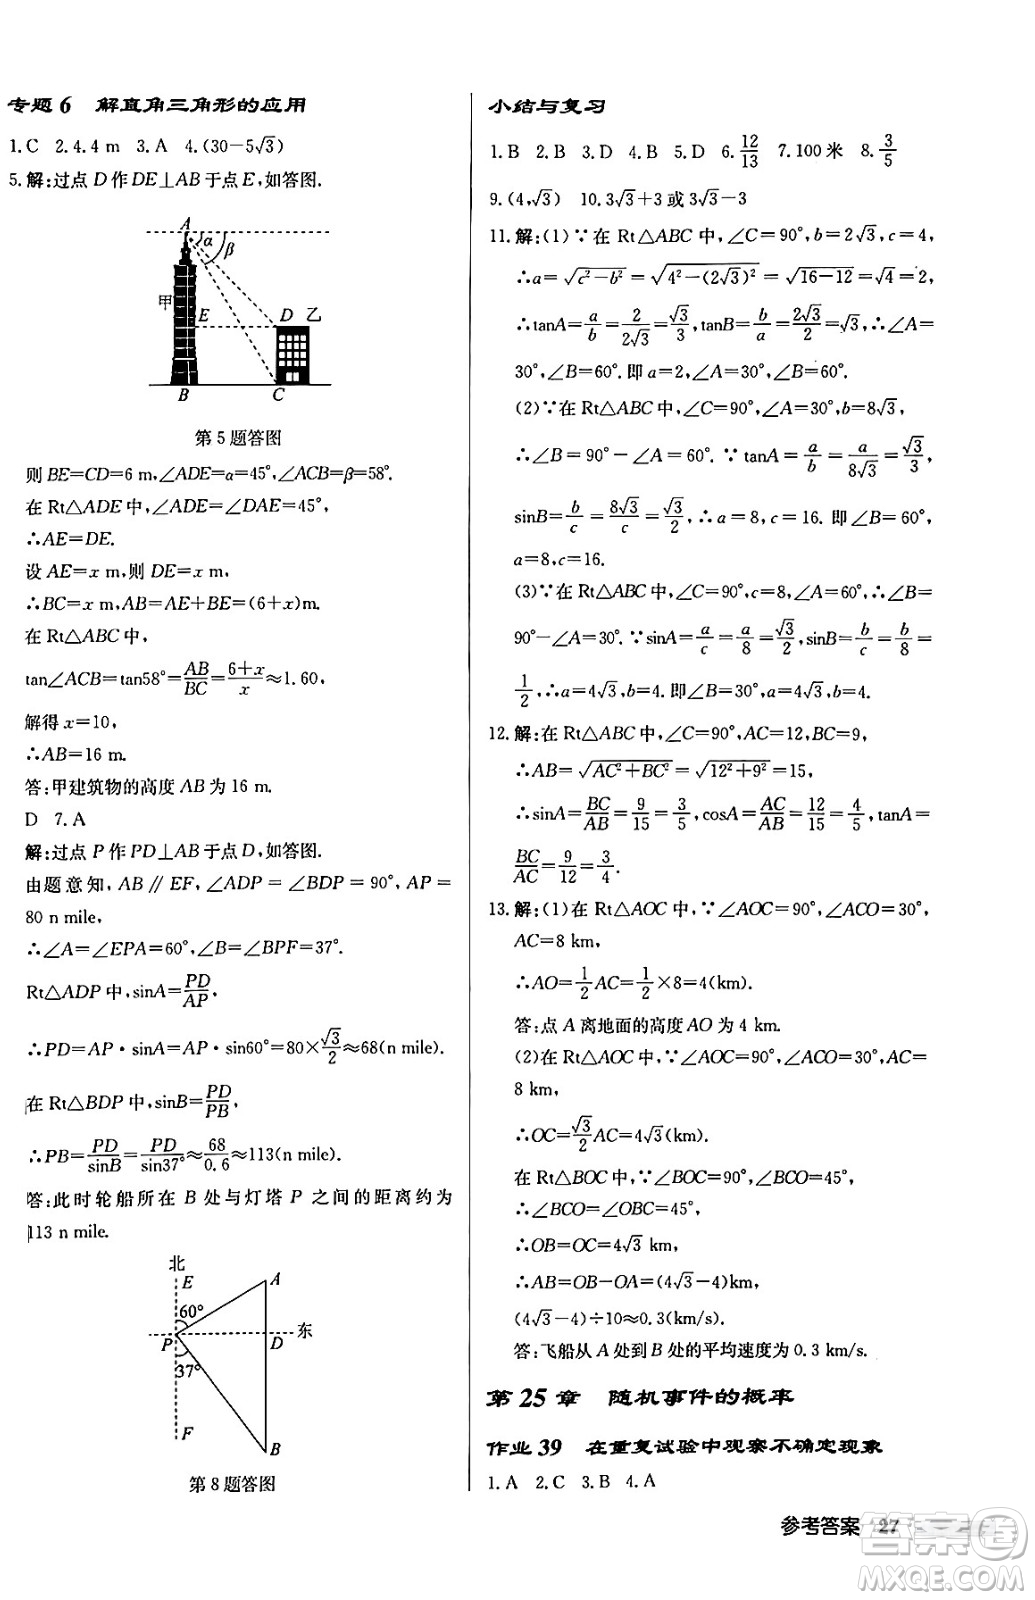 专题6 解直角三角形的应用
1.C 2.4.4 m 3.A 4.(30-5√3)
5.解:过点 D 作 DE⊥AB 于点 E,如答图.
A
α
β
甲
E
D 乙
B
C
第5题答图
则 BE=CD=6 m,∠ADE=α=45°,∠ACB=β=58°.
在 Rt△ADE 中,∠ADE=∠DAE=45°,
∴AE=DE.
设 AE=x m,则 DE=x m,
∴BC=x m,AB=AE+BE=(6+x)m.
在 Rt△ABC 中,
tan∠ACB=tan58°=AB/BC=(6+x)/x≈1.60,
解得 x=10,
∴AB=16 m.
答:甲建筑物的高度 AB 为 16 m.
D 7.A
解:过点 P 作 PD⊥AB 于点 D,如答图.
由题意知,AB∥EF,∠ADP=∠BDP=90°,AP=
80 n mile,
∴∠A=∠EPA=60°,∠B=∠BPF=37°.
Rt△ADP 中,sinA=PD/AP,
∴PD=AP·sinA=AP·sin60°=80×√3/2≈68(n mile).
在 Rt△BDP 中,sinB=PD/PB,
∴PB=PD/sinB=PD/sin37°≈68/0.6≈113(n mile).
答:此时轮船所在 B 处与灯塔 P 之间的距离约为
113 n mile.
北
E
A
60°
P
D
东
37°
F
B
第8题答图
小结与复习
1.B 2.B 3.D 4.B 5.D 6.12/13 7.100米 8.3/5
9.(4,√3) 10.3√3+3或3√3-3
11.解:(1)∵在 Rt△ABC 中,∠C=90°,b=2√3,c=4,
∴a=√(c²-b²)=√(4²-(2√3)²)=√(16-12)=√4=2,
∴tanA=a/b=2/(2√3)=√3/3,tanB=b/a=2√3/2=√3,∴∠A=
30°,∠B=60°.即 a=2,∠A=30°,∠B=60°.
(2)∵在 Rt△ABC 中,∠C=90°,∠A=30°,b=8√3,
∴∠B=90°-∠A=60°.∵tanA=a/b=a/(8√3)=√3/3,
sinB=b/c=8√3/c=√3/2,∴a=8,c=16.即∠B=60°,
a=8,c=16.
(3)∵在 Rt△ABC 中,∠C=90°,c=8,∠A=60°,∴∠B=
90°-∠A=30°.∵sinA=a/c=a/8=√3/2,sinB=b/c=b/8=
1/2,∴a=4√3,b=4.即∠B=30°,a=4√3,b=4.
12.解:在 Rt△ABC 中,AC=12,BC=9,
∴AB=√(AC²+BC²)=√(12²+9²)=15,
∴sinA=BC/AB=9/15=3/5,cosA=AC/AB=12/15=4/5,tanA=
BC/AC=9/12=3/4.
13.解:(1)在 Rt△AOC 中,∵∠AOC=90°,∠ACO=30°,
AC=8 km,
∴AO=1/2AC=1/2×8=4(km).
答:点 A 离地面的高度 AO 为 4 km.
(2)在 Rt△AOC 中,∵∠AOC=90°,∠ACO=30°,AC=
8 km,
∴OC=√3/2AC=4√3(km).
在 Rt△BOC 中,∵∠BOC=90°,∠BCO=45°,
∴∠BCO=∠OBC=45°,
∴OB=OC=4√3 km,
∴AB=OB-OA=(4√3-4)km,
(4√3-4)÷10≈0.3(km/s).
答:飞船从 A 处到 B 处的平均速度为 0.3 km/s.
第25章 随机事件的概率
作业39 在重复试验中观察不确定现象
1.A 2.C 3.B 4.A
参考答案 27
答案圈